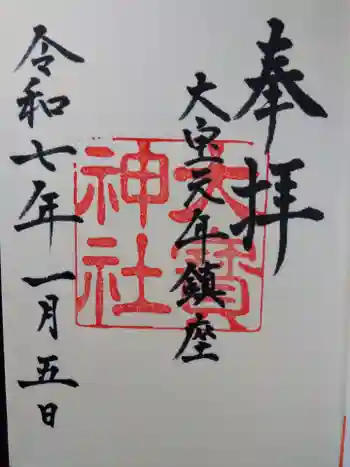 奉拝
大宝元年鎮座
大寶
神社
令和七年一月五日